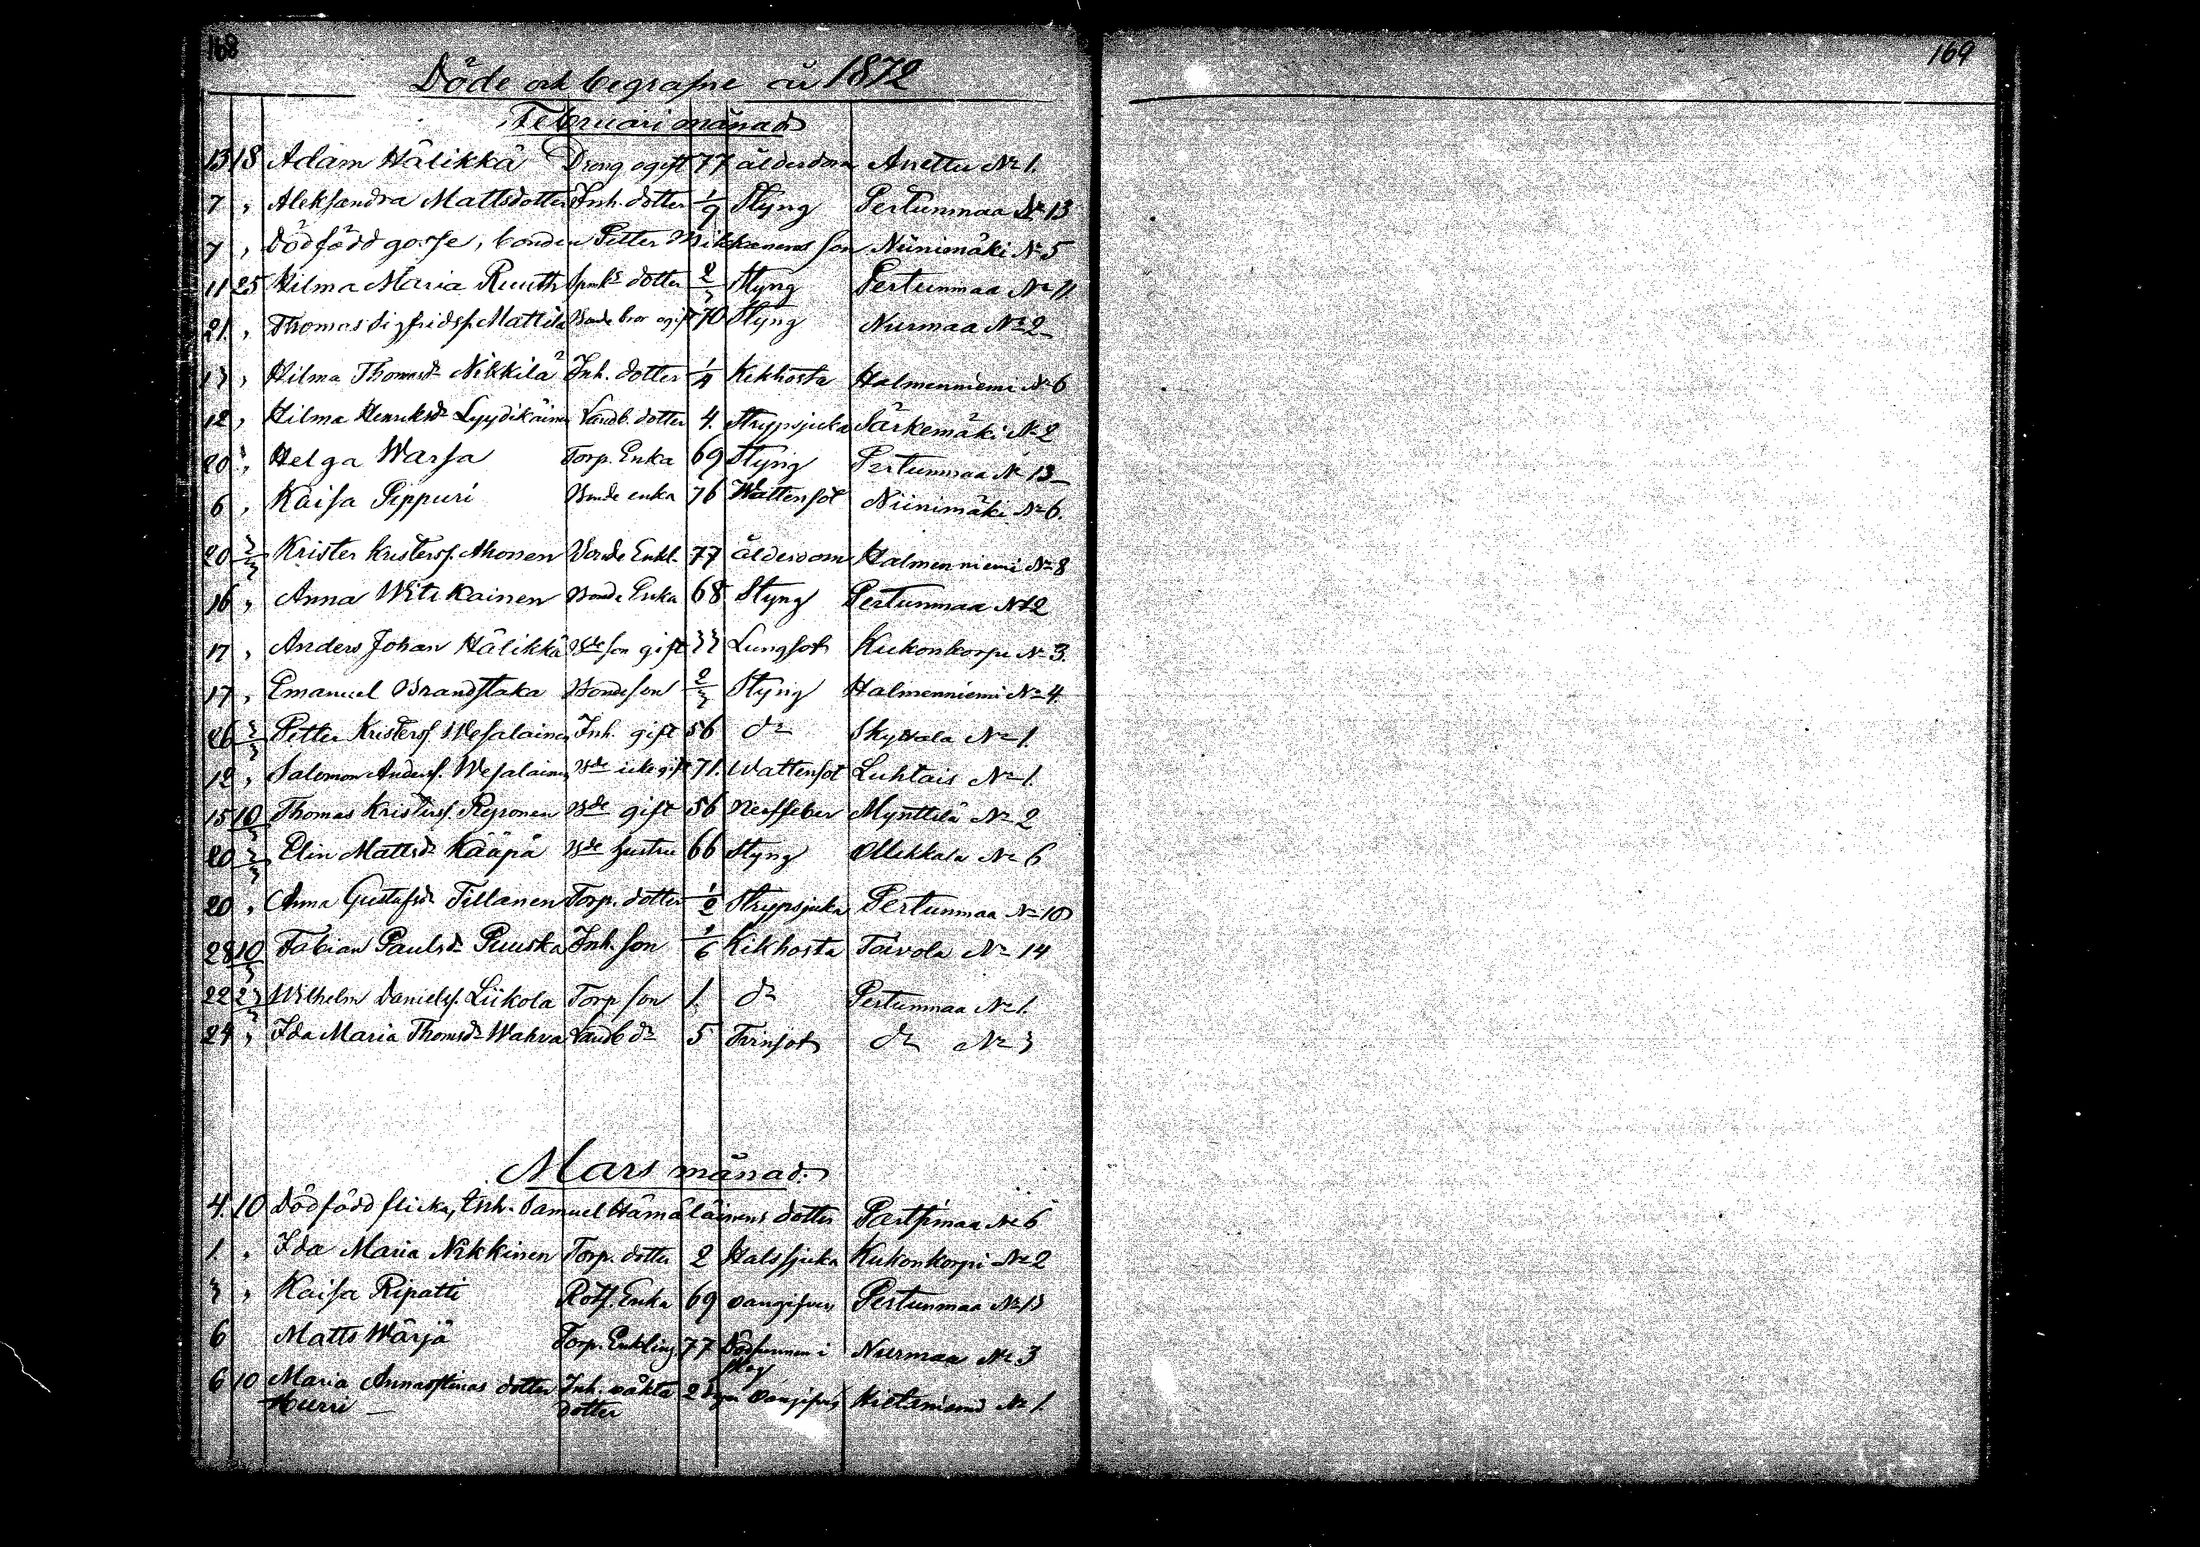 168
169
Döde och begrafne år 1872
Februari månad
13 18 Adam Hälikkä Dräng ogift 77 ålderdom Anettu No 1.
7 " Aleksandra Mattsdotter Inh. dotter 1/9 Styng Pertunmaa No 13
7 " Dödfödd gosse, bonden Petter Mikkanens son Niinimäki No 5
11 25 Hilma Maria Ruuth dotter 2/3 Styng Pertunmaa No 11
21. " Thomas Sigfridss. Mattila Bonde bror ogift 70 Styng Nurmaa No 2
13 " Hilma Thomasdr Nikkilä Inh. dotter 1/4 Kikhosta Halmenniemi No 6
12 " Hilma Henriksdr Lyydikäinen Landb. dotter 4. Strypsjuka Särkemäki No 2
20 " Helga Warsa Torp. Enka 69 Styng Pertunmaa No 13
6 " Kaisa Pippuri Bonde enka 76 Wattensot Niinimäki No 6.
20 3/3 Krister Kristerss. Ahonen Bonde Enkl. 77 ålderdom Halmenniemi No 8
16 " Anna Witikainen Bonde Enka 68 Styng Pertunmaa No 2
17 " Anders Johan Hälikkä Bde son gift 33 Lungsot Kukonkorpi No 3.
17 " Emanuel Brandstaka Bondeson 2/3 Styng Halmenniemi No 4
26 3/3 Petter Kristerss. Wesalainen Inh. gift 56 do No 1.
12 " Salomon Anderss. Wesalainen Bde gift 71. Wattensot Luhtais No 1.
15 10/3 Thomas Kristerss. Reponen Bde gift 56 Nerffeber Mynttilä No 2
20 3/3 Elin Mattsdr Kääpä Bde hustru 66 Styng Ollikkala No 6
20 " Anna Gustafsdr Tillanen Torp. dotter 1/2 Strypsjuka Pertunmaa No 10
28 10/3 Fabian Paulsdr Puuska Inh. son 1/6 Kikhosta Toivola No 14
22 23 Wilhelm Danielss. Liikola Torp son 1. do Pertunmaa No 1.
24 " Ida Maria Thomsdr Wahva Landb dr 5 Tvinsot do No 3
Mars månad.
4. 10 Dödfödd flicka, Inh. Samuel Hämäläinens dotter No 6
1. " Ida Maria Nikkinen Torp. dotter 2 Halssjuka Kukonkorpi No 2
3 " Kaisa Ripatti Rotf. Enka 69 oangifven Pertunmaa No 13
6 Matts Wärjä Torp. Enkling 77 i Nurmaa No 3
skog
6 10 Maria Annastinas dotter Inh. oäkta 2 dgr oangifven No 1.
Hurri dotter